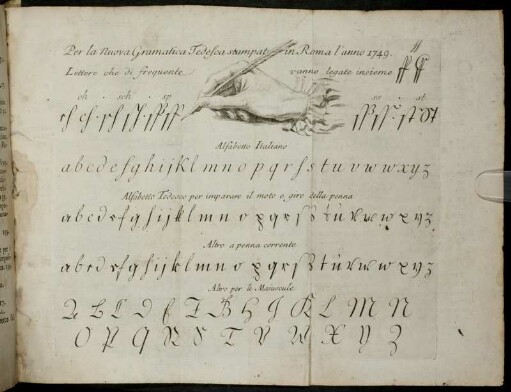 Per la Nuova Gramatica Tedesca stampata in Roma l'anno 1749.
Lettere che di frequente vanno legate insieme ff ff
ch . sch . sp ss . st
Alfabetto Italiano
a b c d e f g h i j k l m n o p q r s s t u v w w x y z
Alfabetto Tedesco per imparare il moto e giro della penna
a b c d e f g h i j k l m n o p q r s s t u v w w x y z
Altro a penna corrente
a b c d e f g h i j k l m n o p q r s s t u v w w x y z
Altro per le Majuscule
A B C D E F G H I K L M N
O P Q R S T V W X Y Z